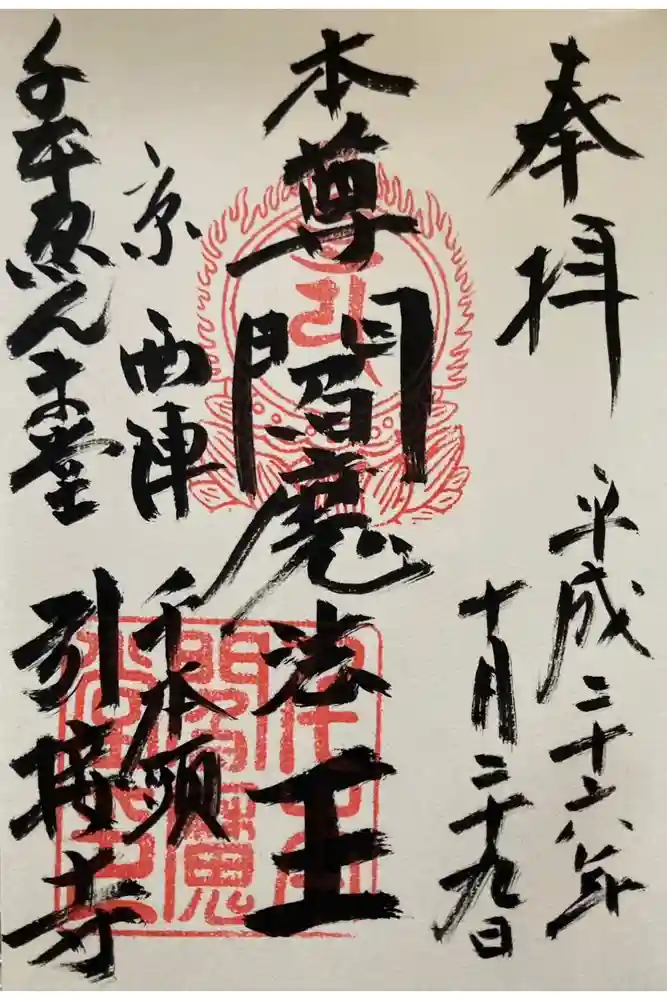 奉拝
平成二十六年
十月二十九日
本尊閻魔法王
京 西陣
千本頭
千本ゑんま堂
引接寺